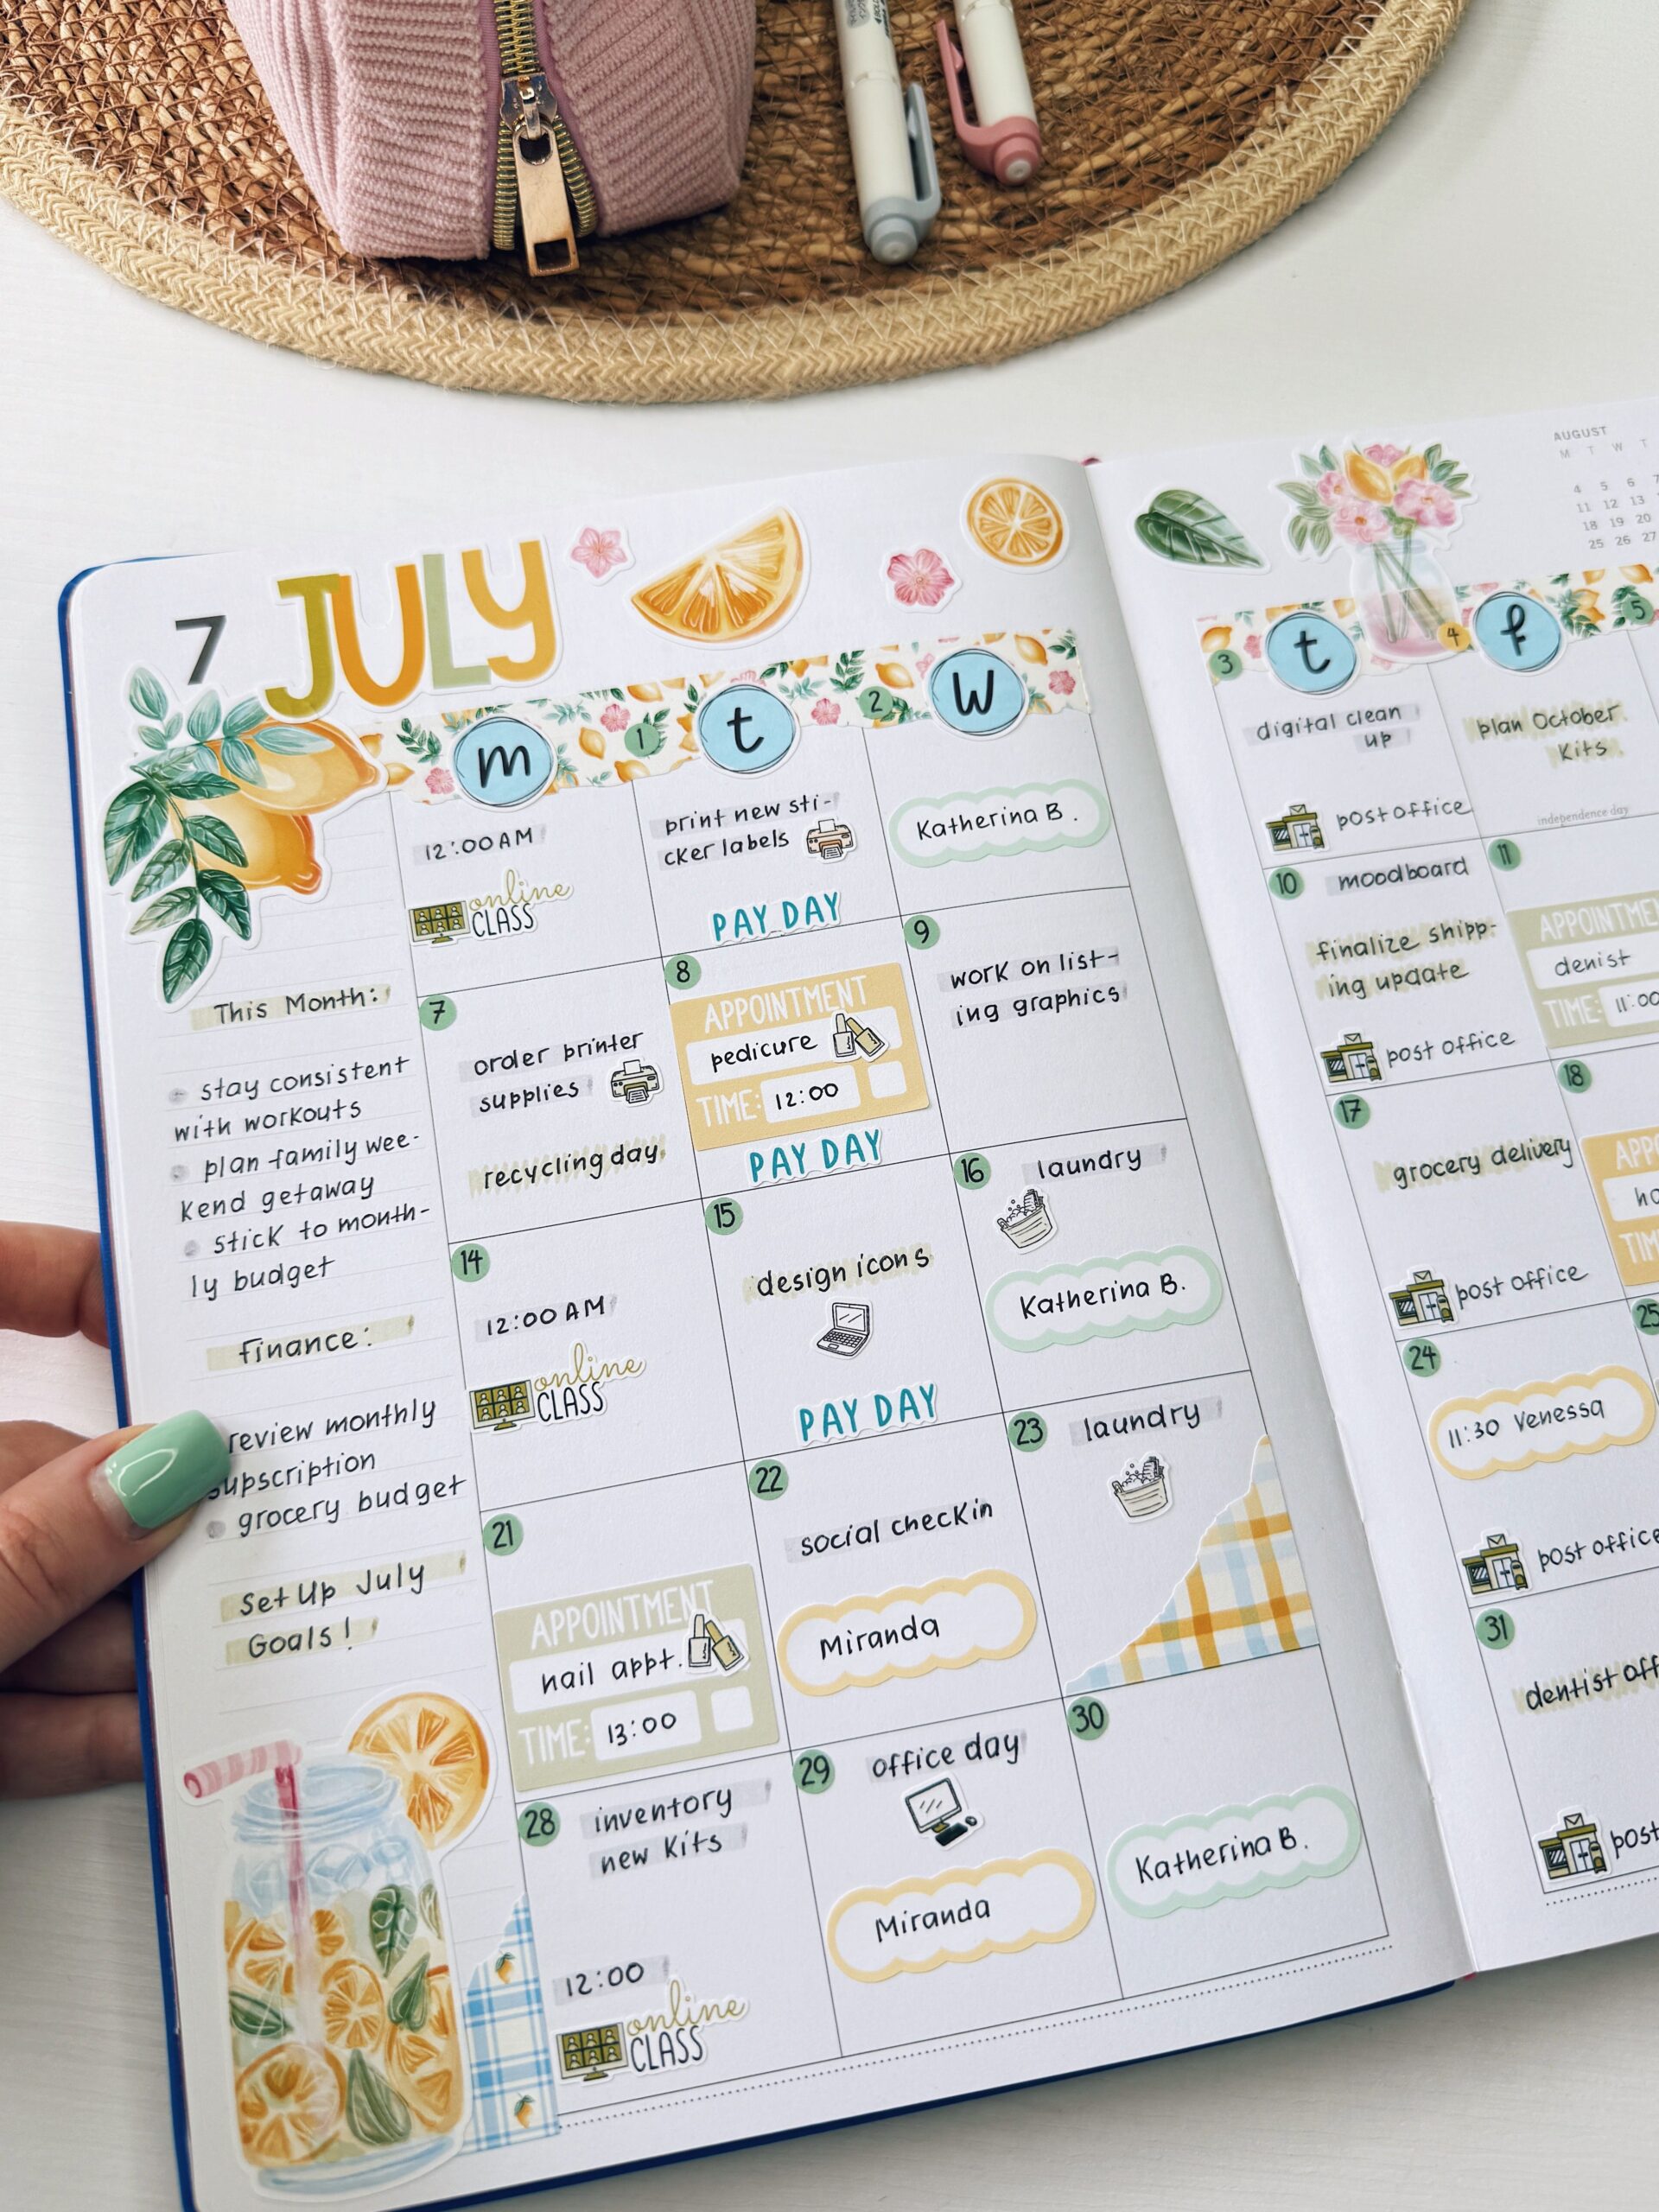 AUGUST
M T W T
4 5 6 7
11 12 13
18 19 20
25 26 27
7 JULY
m 1 t 2 w
3 t 4 f 5
This Month:
stay consistent
with workouts
plan family wee-
kend getaway
stick to month-
ly budget
Finance:
review monthly
supscription
grocery budget
Set Up July
Goals!
12:00 AM
online
CLASS
print new sti-
cker labels
PAY DAY
Katherina B.
digital clean
up
post office
plan October
Kits
independence day
7
order printer
supplies
recycling day
8
APPOINTMENT
pedicure
TIME: 12:00
PAY DAY
9
work on list-
ing graphics
10 moodboard
finalize shipp-
ing update
post office
11
APPOINTME
denist
TIME: 11:00
14
12:00 AM
online
CLASS
15
design icons
PAY DAY
16 laundry
Katherina B.
17
grocery delivery
post office
18
APPO
TIM
21
APPOINTMENT
nail appt.
TIME: 13:00
22
social checkin
Miranda
23 laundry
24
11:30 Venessa
post office
25
28 inventory
new Kits
12:00
online
CLASS
29 office day
Miranda
30
Katherina B.
31
dentist off
post